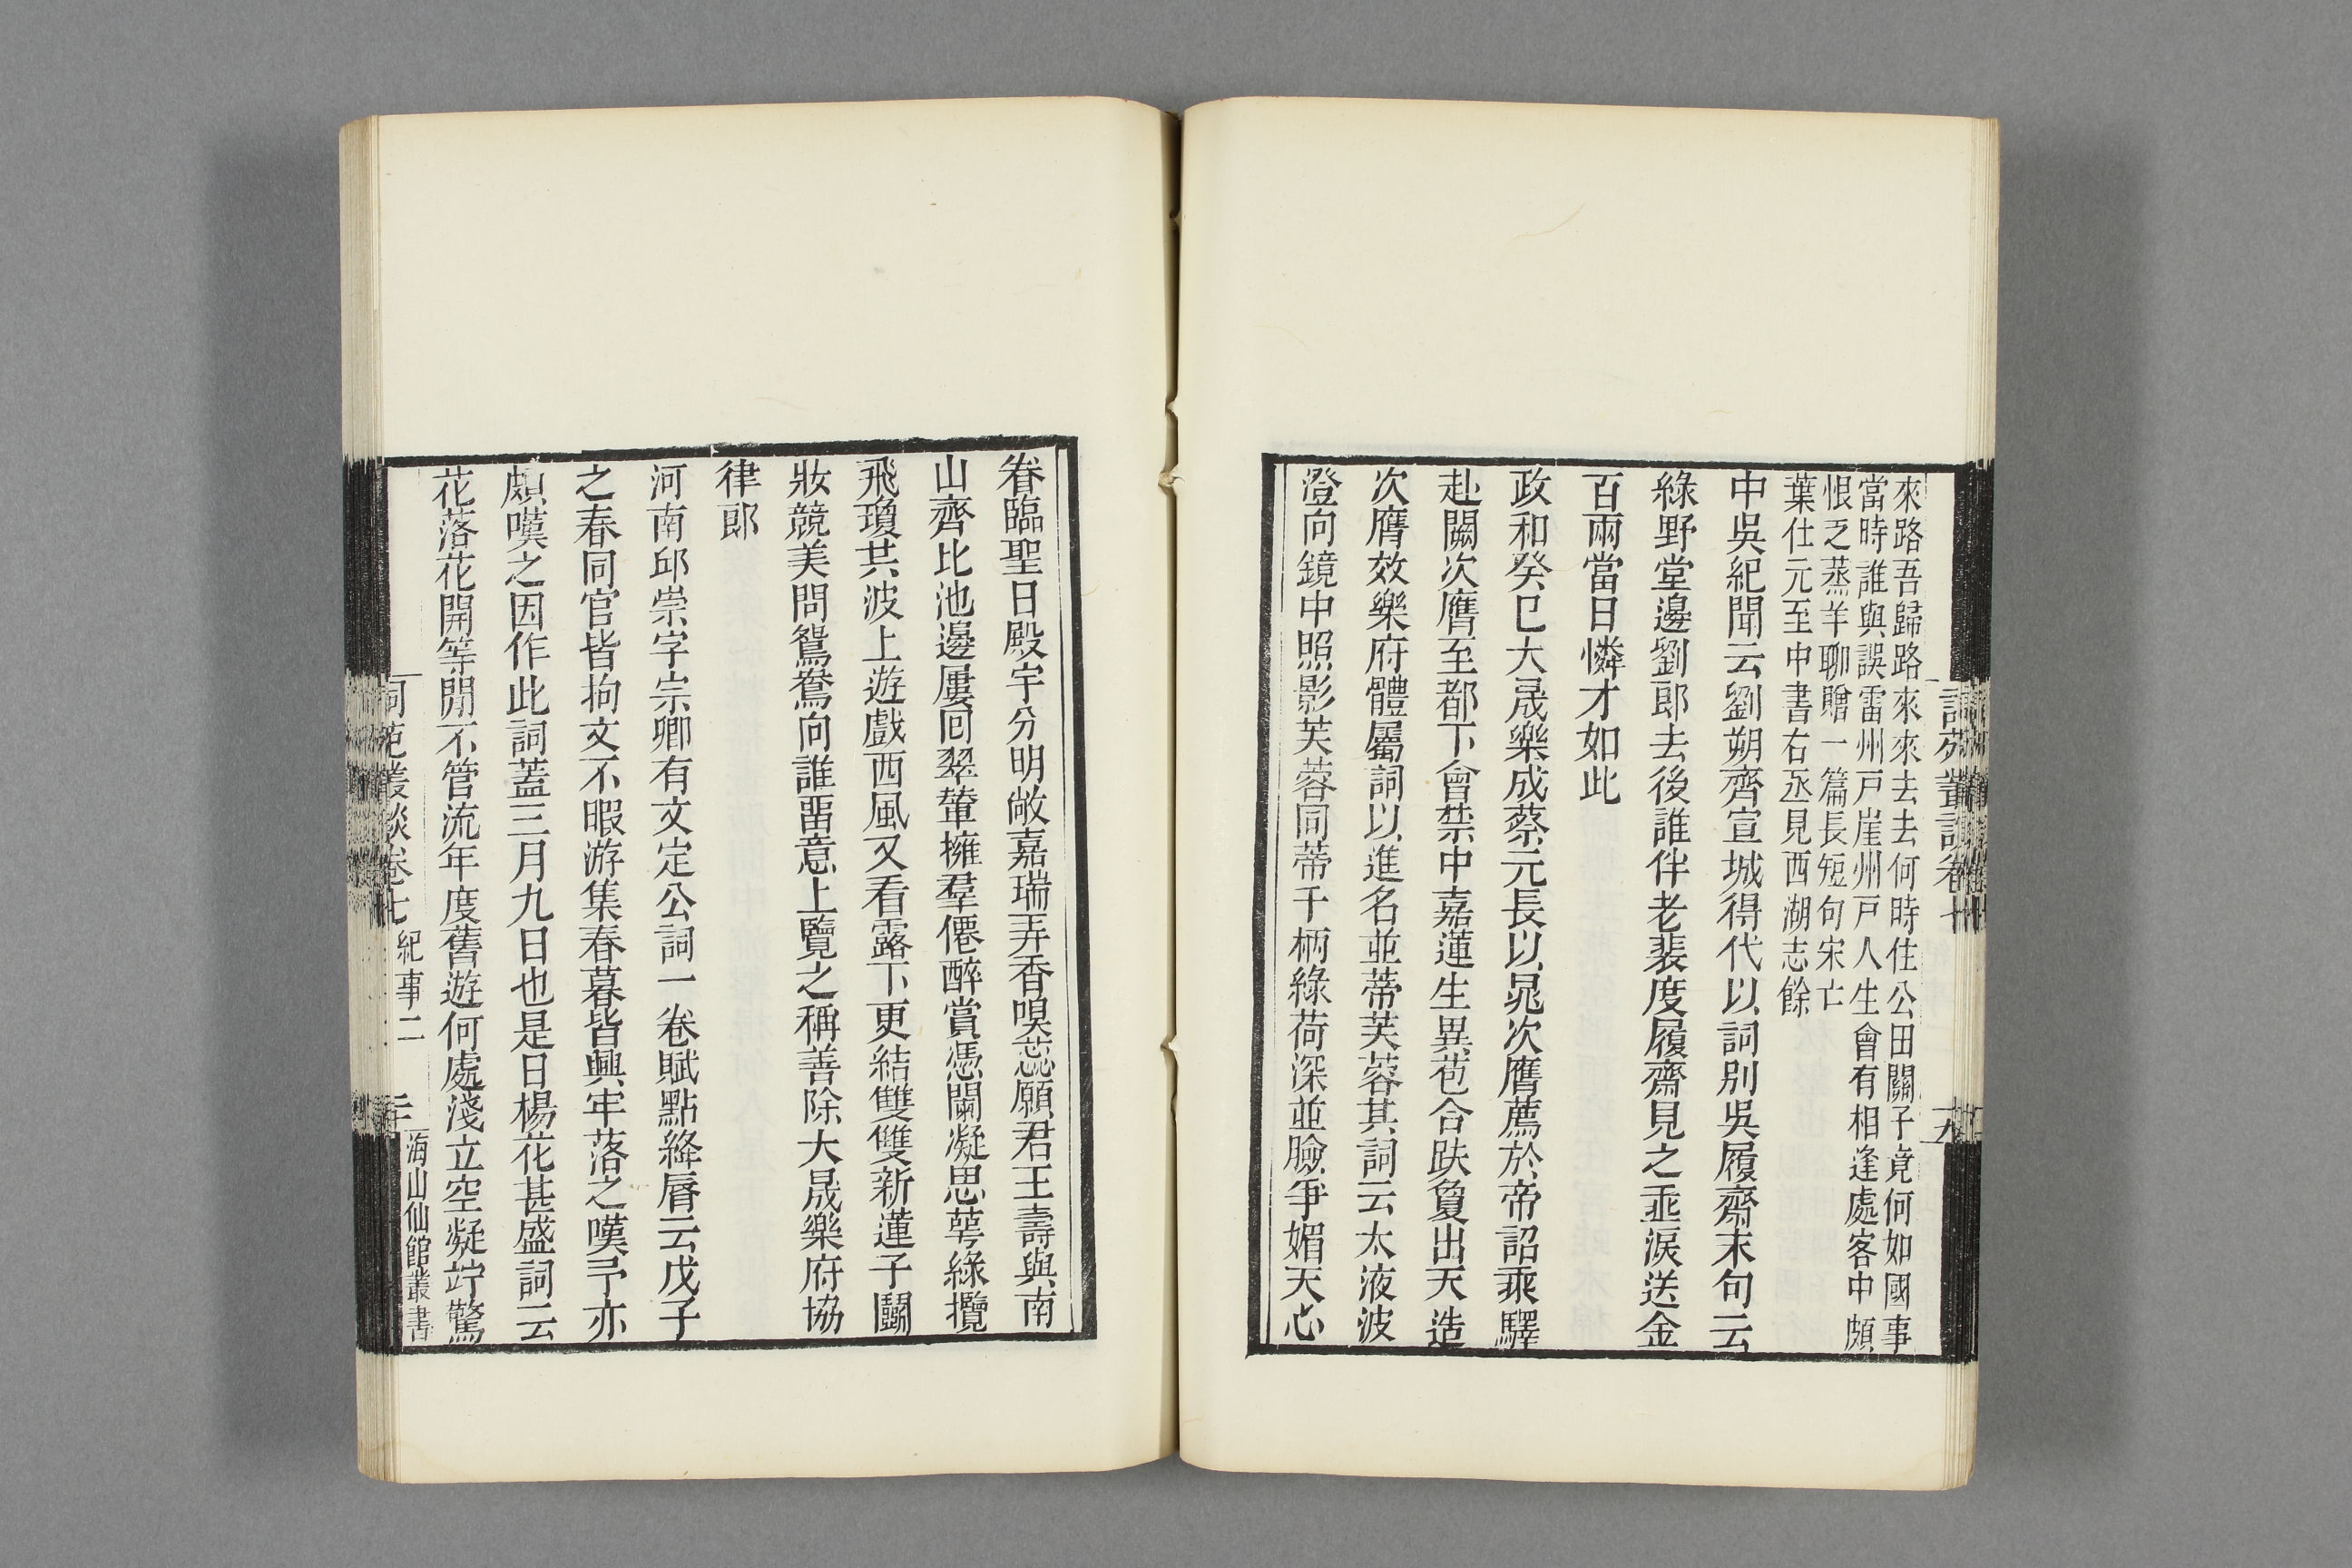 詞苑叢談卷七
十九
來路吾歸路來來去去何時住公田關子竟何如國事
當時誰與誤雷州戸崖州戸人生會有相逢處客中頗
恨乏蒸羊聊贈一篇長短句宋亡
葉仕元至中書右丞見西湖志餘
中吳紀聞云劉朔齊宣城得代以詞別吳履齋末句云
綠野堂邊劉郎去後誰伴老裴度履齋見之垂淚送金
百兩當日憐才如此
政和癸巳大晟樂成蔡元長以晁次膺薦於帝詔乘驛
赴闕次膺至都下會禁中嘉蓮生異苞合趺夐出天造
次膺效樂府體屬詞以進名並蒂芙蓉其詞云太液波
澄向鏡中照影芙蓉同蒂千柄綠荷深並臉爭媚天心
眷臨聖日殿宇分明敞嘉瑞弄香嗅蕊願君王壽與南
山齊比池邊屢回翠輦擁羣僊醉賞憑闌凝思萼綠攬
飛瓊共波上遊戲西風又看露下更結雙雙新蓮子鬭
妝競美問鴛鴦向誰畱意上覽之稱善除大晟樂府協
律郎
河南邱崇字宗卿有文定公詞一卷賦點絳脣云戊子
之春同官皆拘文不暇游集春暮皆興牢落之嘆予亦
頗嘆之因作此詞蓋三月九日也是日楊花甚盛詞云
花落花開等閒不管流年度舊遊何處淺立空凝竚驚
詞苑叢談卷七 紀事二
二十
海山仙館叢書